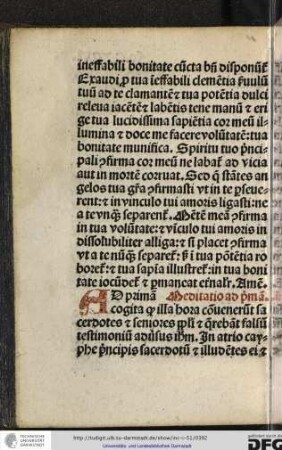 ineffabili bonitate cūcta bñ disponūt
Exaudi ꝓ tua īeffabili clemētia ꝑuulū
tuū ad te clamantē ⁊ tua potētia dulci
releua iacētē ⁊ labētis tene manū ⁊ eri
ge tua lucidissima sapiētia cor meū il⸗
lumina ⁊ doce me facere volūtatē: tua
bonitate munifica. Spiritu tuo pⁱnci⸗
pali ꝯfirma cor meū ne labat ad vicia
aut in mortē corruat. Sed q̄ stātes an
gelos tua gr̄a ꝯfirmasti vt in te pſeue⸗
rent: ⁊ in vinculo tui amoris ligasti: ne
a te vnq̄ separent. Mētē meā ꝯfirma
in tua volūtate: ⁊ vīculo tui amoris in
dissolubiliter alliga: ⁊ si placet ꝯfirma
vt a te nūq̄ separet: ꝑ ī tua pōtētia ro
boret: ⁊ tua sapīa illustret: in tua boni
tate iocūdet ⁊ pmaneat eternalr. Amē.
AD primā Meditatio ad pⁱmā.
cogita ꝙ illa hora cōuenerūt sa
cerdotes ⁊ seniores ppl̄i ⁊ q̄rebāt falsū
testimoniū aduſus ihm. In atrio cay⸗
phe pⁱncipis sacerdotū ⁊ illudētes ei ⁊
http://tudigit.ulb.tu-darmstadt.de/show/inc-ii-51/0392
Universitäts- und Landesbibliothek Darmstadt